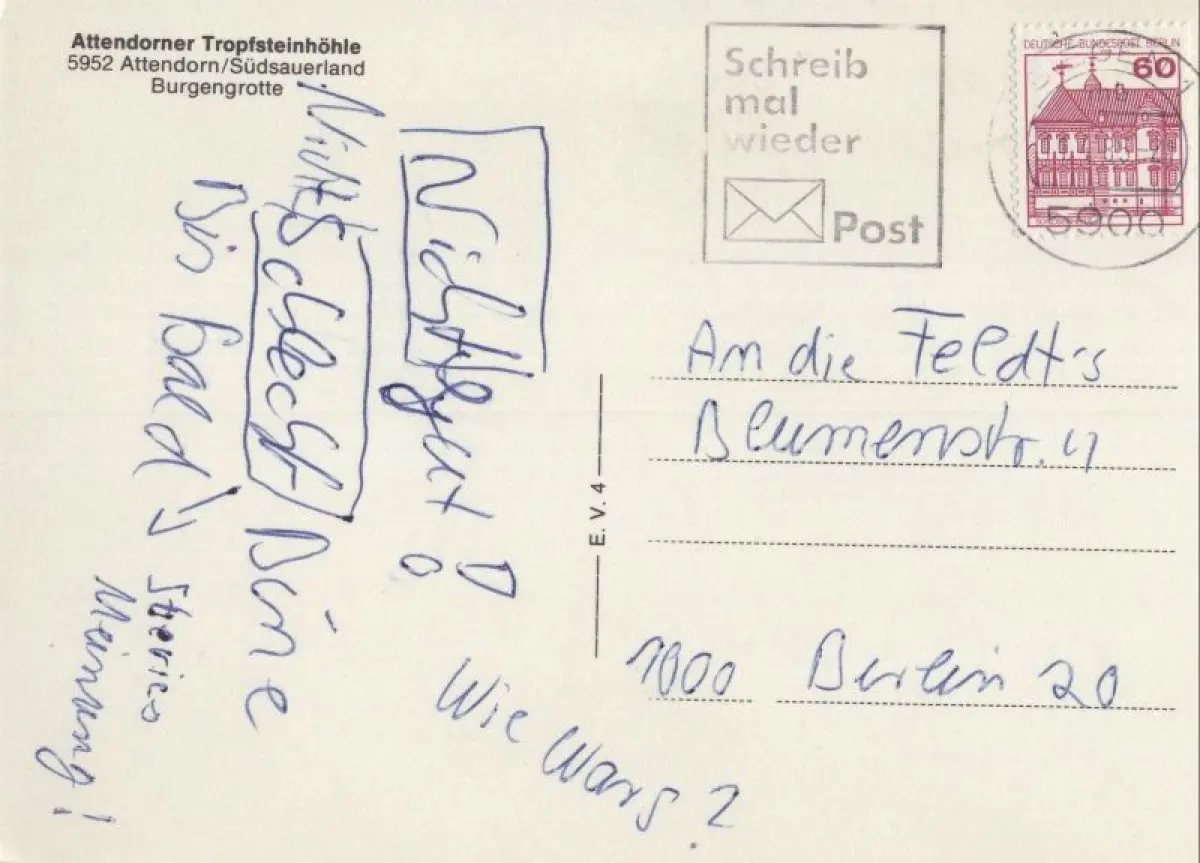 Attendorner Tropfsteinhöhle
5952 Attendorn/Südsauerland
Burgengrotte
Schreib
mal
wieder
Post
DEUTSCHE BUNDESPOST BERLIN
60
5900
Nicht gut
Nicht
schlecht
Bis bald
Meinung!
Wie Wars?
E. V. 4
An die Feldt's
Blumenstr. 4
1000 Berlin 20